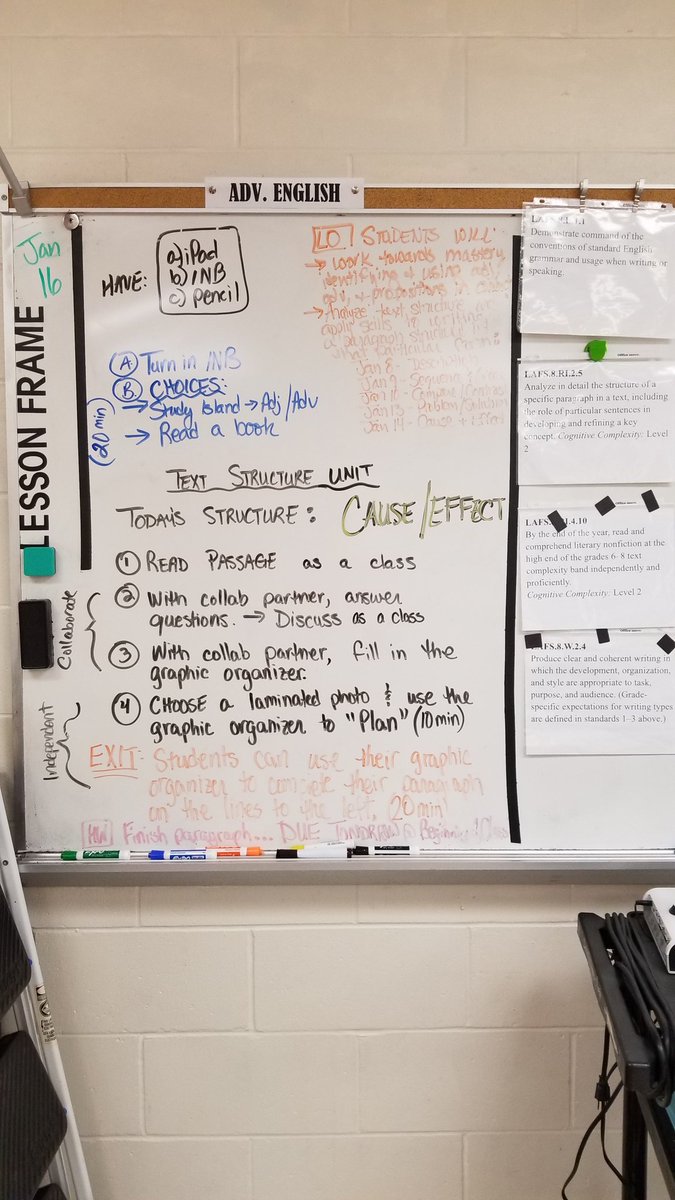 ADV. ENGLISH
Jan
16
LESSON FRAME
HAVE:
a) iPad
b) INB
c) Pencil
LO STUDENTS WILL:
→ work towards mastery
identifying + using adj,
adv, + prepositions in
→ Analyze text structure
apply skills
a paragraph
what
Jan 8 -
Jan 9 - Sequence
Jan 10 - Compare/Contrast
Jan 13 - Problem/Solution
Jan 14 - Cause + Effect
A. Turn in INB
B. CHOICES:
→ Study Island → Adj/Adv
→ Read a book
(20 min)
TEXT STRUCTURE UNIT
TODAY'S STRUCTURE: CAUSE/EFFECT
1 READ PASSAGE as a class
2 With collab partner, answer
questions. → Discuss as a class
3 With collab partner, fill in the
graphic organizer.
4 CHOOSE a laminated photo & use the
graphic organizer to "Plan" (10 min)
Collaborate
Independent
EXIT: Students can use their graphic
organizer to complete their paragraph
on the lines to the left. (20 min)
HW Finish paragraph... DUE TOMORROW @ Beginning of Class
Demonstrate command of the
conventions of standard English
grammar and usage when writing or
speaking.
LAFS.8.RI.2.5
Analyze in detail the structure of a
specific paragraph in a text, including
the role of particular sentences in
developing and refining a key
concept. Cognitive Complexity: Level
2
By the end of the year, read and
comprehend literary nonfiction at the
high end of the grades 6-8 text
complexity band independently and
proficiently.
Cognitive Complexity: Level 2
LAFS.8.W.2.4
Produce clear and coherent writing in
which the development, organization,
and style are appropriate to task,
purpose, and audience. (Grade-
specific expectations for writing types
are defined in standards 1–3 above.)